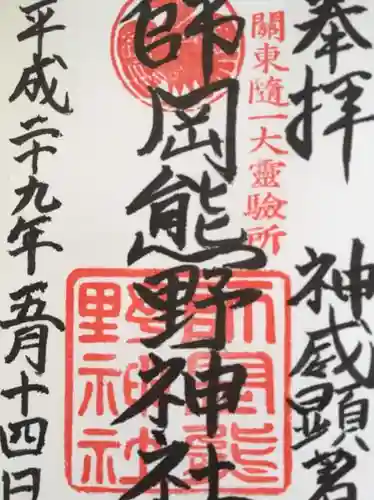 奉拝
神威顕著
關東隨一大靈驗所
師岡熊野神社
師岡熊野神社
平成二十九年五月十四日